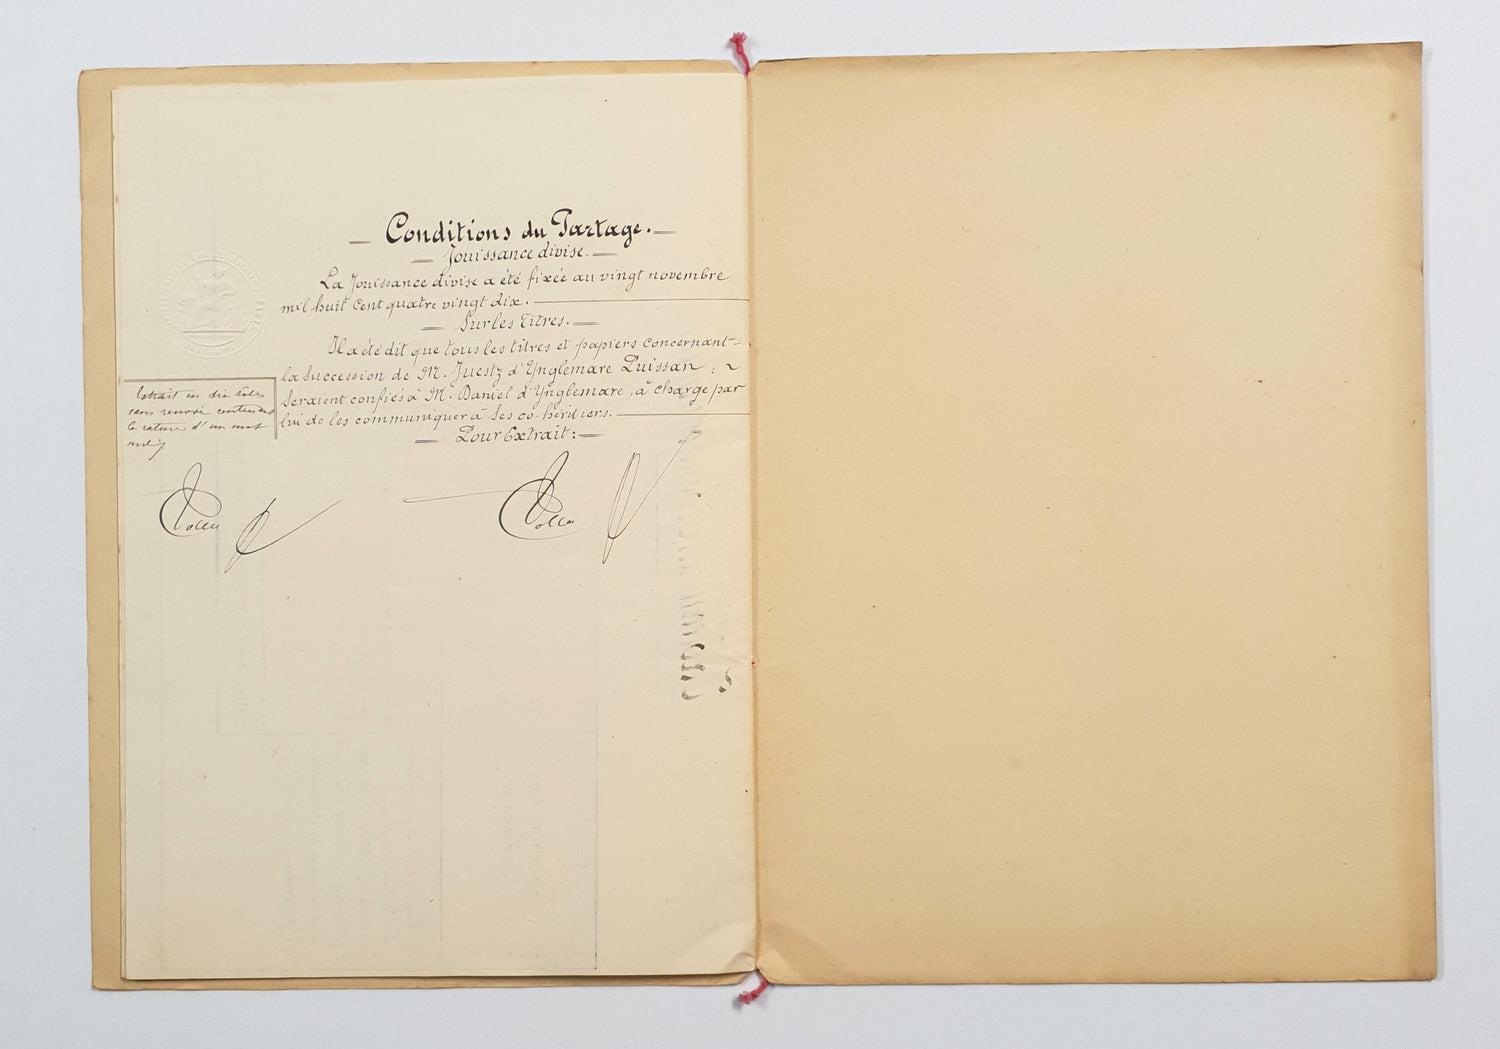 Conditions du Partage.
Jouissance divise.
La Jouissance divise a été fixée au vingt novembre
mil huit cent quatre vingt dix.
Sur les Titres.
Il a été dit que tous les titres et papiers concernant
la Succession de M. Juestz d'Ynglemare Puissan,
Seraient confiés à M. Daniel d'Ynglemare, à charge par
lui de les communiquer à Ses co-héritiers.
Pour Extrait:
Extrait en dix rôles
sans renvoi contenant
la rature d'un mot
nul